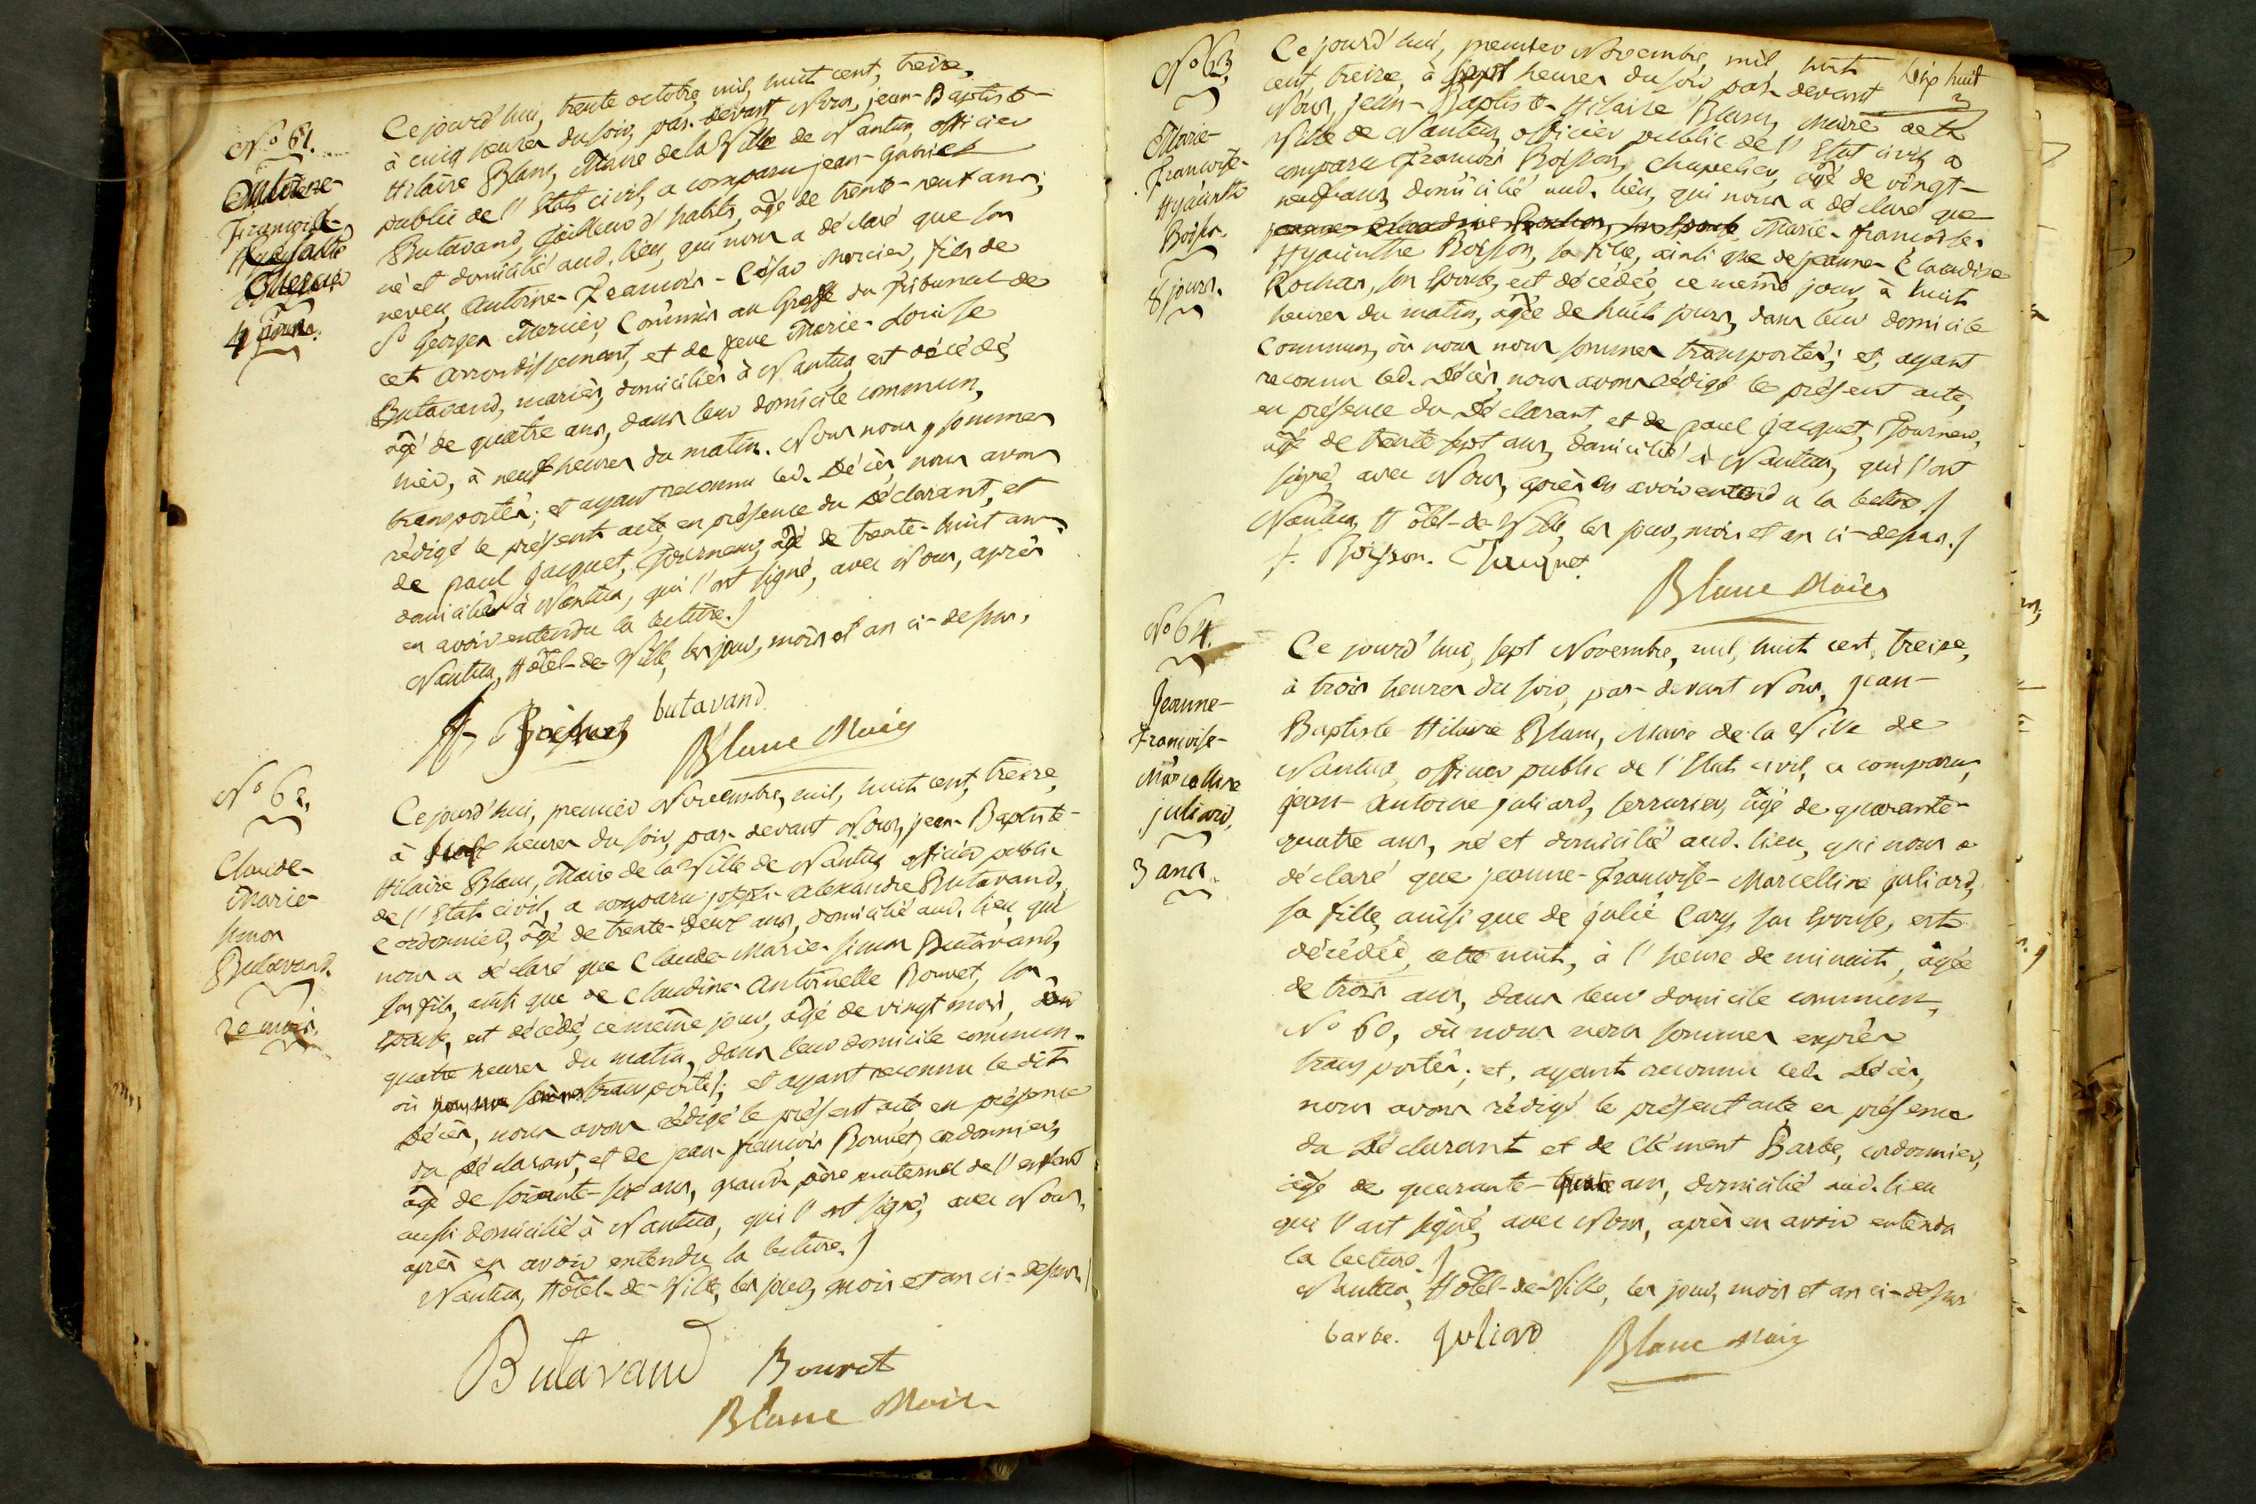 N.o 61.
Antoine-
François-
César
Mercier
4 ans.
Ce jourd'hui, trente octobre, mil, huit cent, treize,
à cinq heures du soir, par-devant Nous, jean-Baptiste-
Hilaire Blanc, Maire de la Ville de Nantua, officier
public de l'Etat civil, a comparu jean-Gabriel
Butavand, Tailleur d'habits, âgé de trente-neuf ans,
né et domicilié aud. lieu, qui nous a déclaré que son
neveu, Antoine-François-César Mercier, fils de
Sr Georges Mercier, Commis au Greffe du Tribunal de
cet arrondissement, et de feue Marie-Louise
Butavand, mariés, domiciliés à Nantua, est décédé,
âgé de quatre ans, dans leur domicile commun,
hier, à neuf heures du matin. Nous nous y sommes
transportés; et ayant reconnu led. Décès, nous avons
rédigé le présent acte, en présence du Déclarant, et
de paul jacquet, Tourneur, âgé de trente-huit ans
domiciliés à Nantua, qui l'ont signé, avec Nous, après
en avoir entendu la lecture./
Nantua, Hôtel-de-Ville, les jour, mois et an ci-dessus.
butavand
Blanc Maire
N.o 62.
Claude-
Marie-
Simon
Butavand.
20 mois.
Ce jourd'hui, premier Novembre, mil, huit cent, treize,
à heures du soir, par-devant Nous, jean-Baptiste-
Hilaire Blanc, Maire de la Ville de Nantua, officier public
de l'Etat civil, a comparu joseph-Alexandre Butavand,
Cordonnier, âgé de trente-deux ans, domicilié aud. lieu, qui
nous a déclaré que Claude-Marie-Simon Butavand,
son fils, ainsi que de Claudine Antoinette Bouvet, son
Epouse, est décédé, ce même jour, âgé de vingt mois, à
quatre heures du matin, dans leur domicile commun,
où nous nous sommes transportés; et ayant reconnu le dit
Décès, nous avons rédigé le présent acte, en présence
du Déclarant, et de jean-françois Bouvet, cordonnier,
âgé de soixante-six ans, grand père maternel de l'enfant
aussi domicilié à Nantua, qui l'ont signé, avec Nous,
après en avoir entendu la lecture./
Nantua, Hôtel-de-Ville, les jour, mois et an ci-dessus./
Butavand Bouvet
Blanc Maire
Dix huit
N.o 63.
Marie-
Françoise-
Hyacinthe
Boisson.
8 jours.
Ce jourd'hui, premier Novembre, mil huit
cent treize, à sept heures du soir par-devant
Nous, jean-Baptiste-Hilaire Blanc, Maire de la
Ville de Nantua, officier public de l'Etat civil, a
comparu François Boisson, Chapelier, âgé de vingt-
neuf ans, domicilié aud. lieu, qui nous a déclaré que
jeanne Claudine Rochas, son Epouse, Marie-françoise-
Hyacinthe Boisson, sa fille, ainsi que de jeanne-Claudine
Rochas, son Epouse, est décédée, ce même jour, à huit
heures du matin, âgée de huit jours, dans leur domicile
Commun, où nous nous sommes transportés; et, ayant
reconnu led. Décès, nous avons rédigé le présent acte,
en présence du Déclarant, et de paul jacquet, Tourneur,
âgé de trente sept ans, domicilié à Nantua, qui l'ont
signé, avec Nous, après en avoir entendu la lecture./
Nantua, Hôtel-de-Ville, les jour, mois et an ci-dessus./
f. Boisson. Jacquet
Blanc Maire
N.o 64.
Jeanne-
Françoise-
Marcelline
juliard,
3 ans.
Ce jourd'hui, sept Novembre, mil, huit cent, treize,
à trois heures du soir, par-devant Nous, jean-
Baptiste Hilaire Blanc, Maire de la Ville de
Nantua, officier public de l'Etat civil, a comparu,
jean-Antoine juliard, serrurier, âgé de quarante-
quatre ans, né et domicilié aud. lieu, qui nous a
déclaré que jeanne-Françoise-Marcelline juliard,
sa fille, ainsi que de julie Cary, son Epouse, est
décédée, cette nuit, à l'heure de minuit, âgée
de trois ans, dans leur domicile commun,
N.o 60, où nous nous sommes exprès
transportés; et, ayant reconnu led. Décès,
nous avons rédigé le présent acte en présence
du Déclarant et de Clément Barbe, cordonnier,
âgé de quarante- ans, domicilié aud. lieu
qui l'ont signé, avec Nous, après en avoir entendu
la lecture./
Nantua, Hôtel-de-Ville, les jour, mois et an ci-dessus
barbe. Juliard Blanc Maire